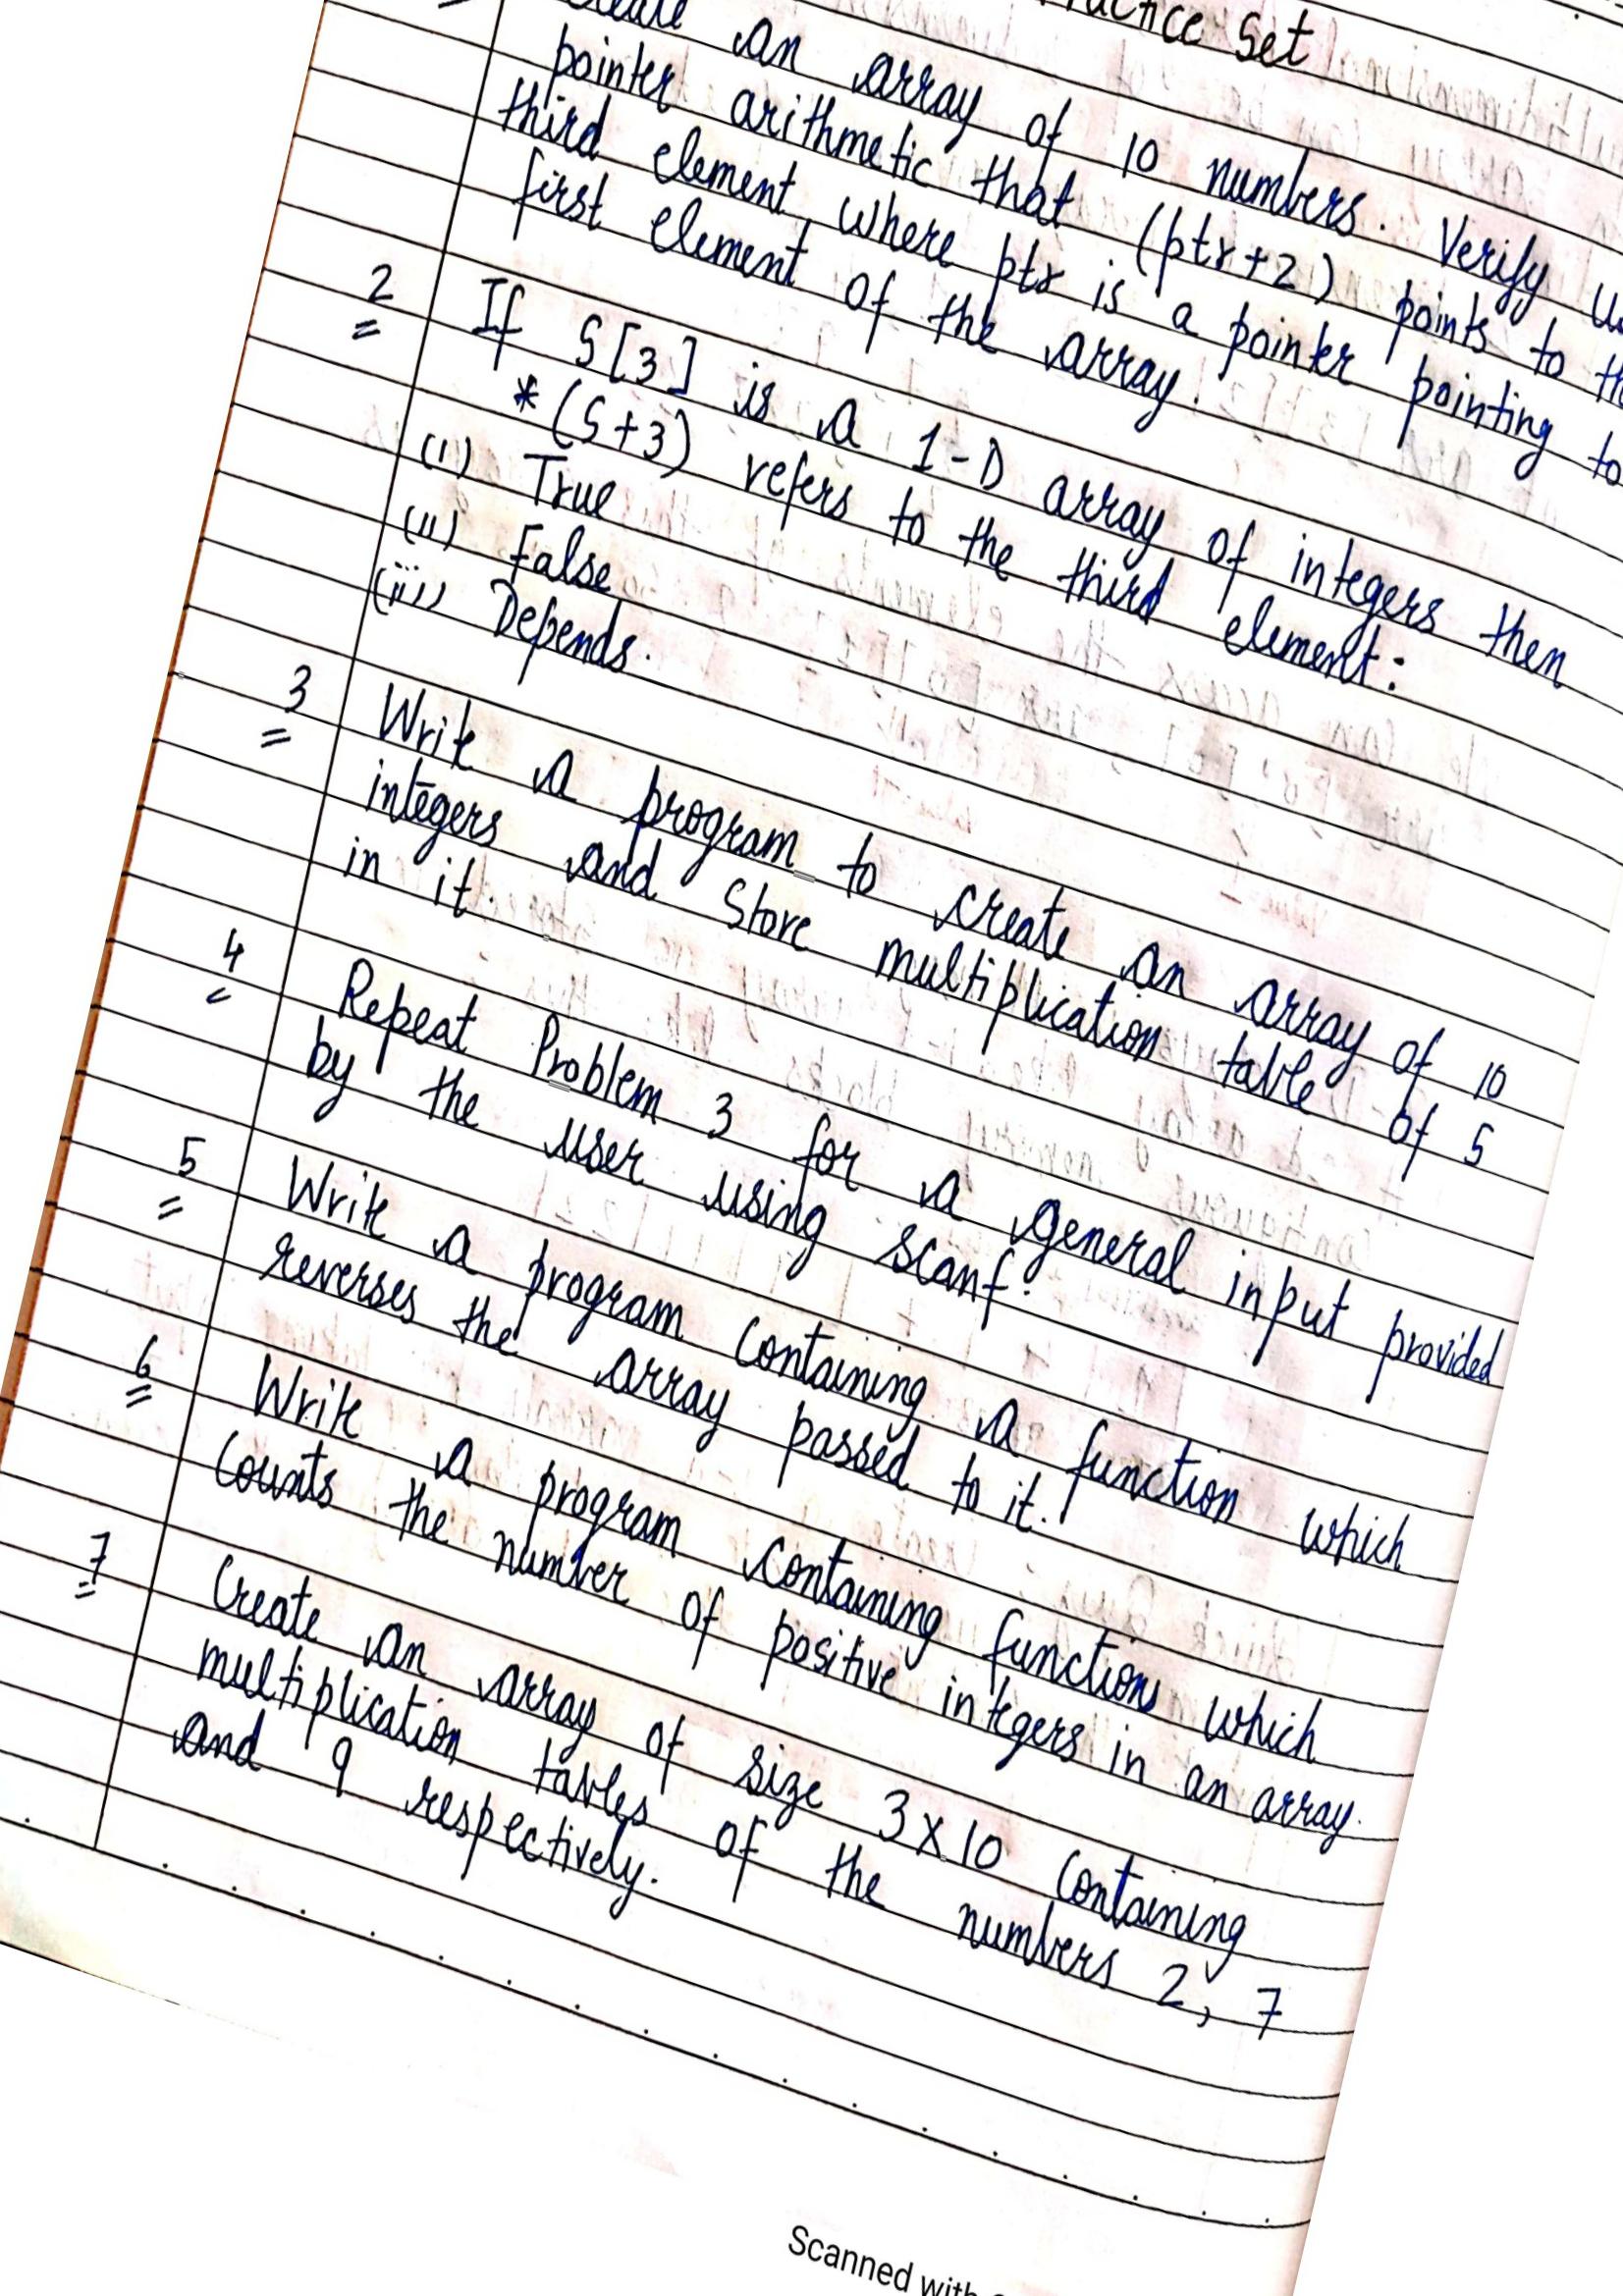 Practice Set
Create an array of 10 numbers. Verify
pointer arithmetic that (ptr+2) points to
third element where ptr is a pointer pointing to
first element of the array.
2 If S[3] is a 1-D array of integers then
*(S+3) refers to the third element:
(i) True
(ii) False
(iii) Depends.
3 Write a program to create an array of 10
integers and store multiplication table of 5
in it.
4 Repeat Problem 3 for a general input provided
by the user using scanf.
5 Write a program containing a function which
reverses the array passed to it.
6 Write a program containing functions which
counts the number of positive integers in an array.
7 Create an array of size 3×10 containing
multiplication tables of the numbers 2, 7
and 9 respectively.
Scanned with